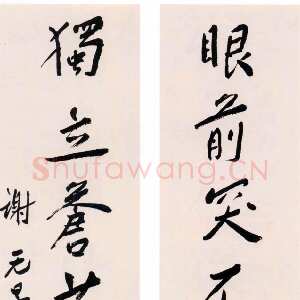 眼前突
獨立蒼
謝元
Shufawang.CN